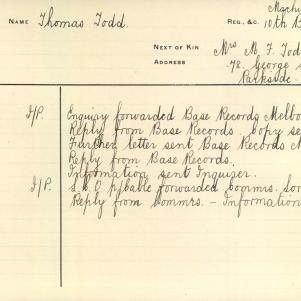 Machi
NAME Thomas Todd. REG., &C. 10th
NEXT OF KIN Mrs M. F. Tod
ADDRESS 78. George
Parkside.
I/P. Enquiry forwarded Base Records Melbo
Reply from Base Records. Copy se
Further letter sent Base Records M
Reply from Base Records.
Information sent Inquirer.
I/P. S.B.O p/bable forwarded Commrs. Lon
Reply from Commrs. - Information